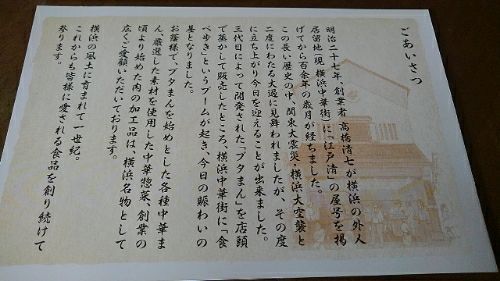 ごあいさつ
明治二十七年、創業者 高橋清七が横浜の外人
居留地(現 横浜中華街)に「江戸清」の屋号を掲
げてから百余年の歳月が経ちました。
この長い歴史の中、関東大震災・横浜大空襲と
二度にわたる大過に見舞われましたが、その度
に立ち上がり今日を迎えることが出来ました。
三代目によって開発された「ブタまん」を店頭
で蒸かして販売したところ、横浜中華街に「食
べ歩き」というブームが起き、今日の賑わいの
基となりました。
お蔭様で、ブタまんを始めとした各種中華ま
ん、厳選した素材を使用した中華惣菜、創業の
頃より始めた肉の加工品は、横浜名物として
広くご愛顧いただいております。
横浜の風土に育まれて一世紀。
これからも皆様に愛される食品を創り続けて
参ります。